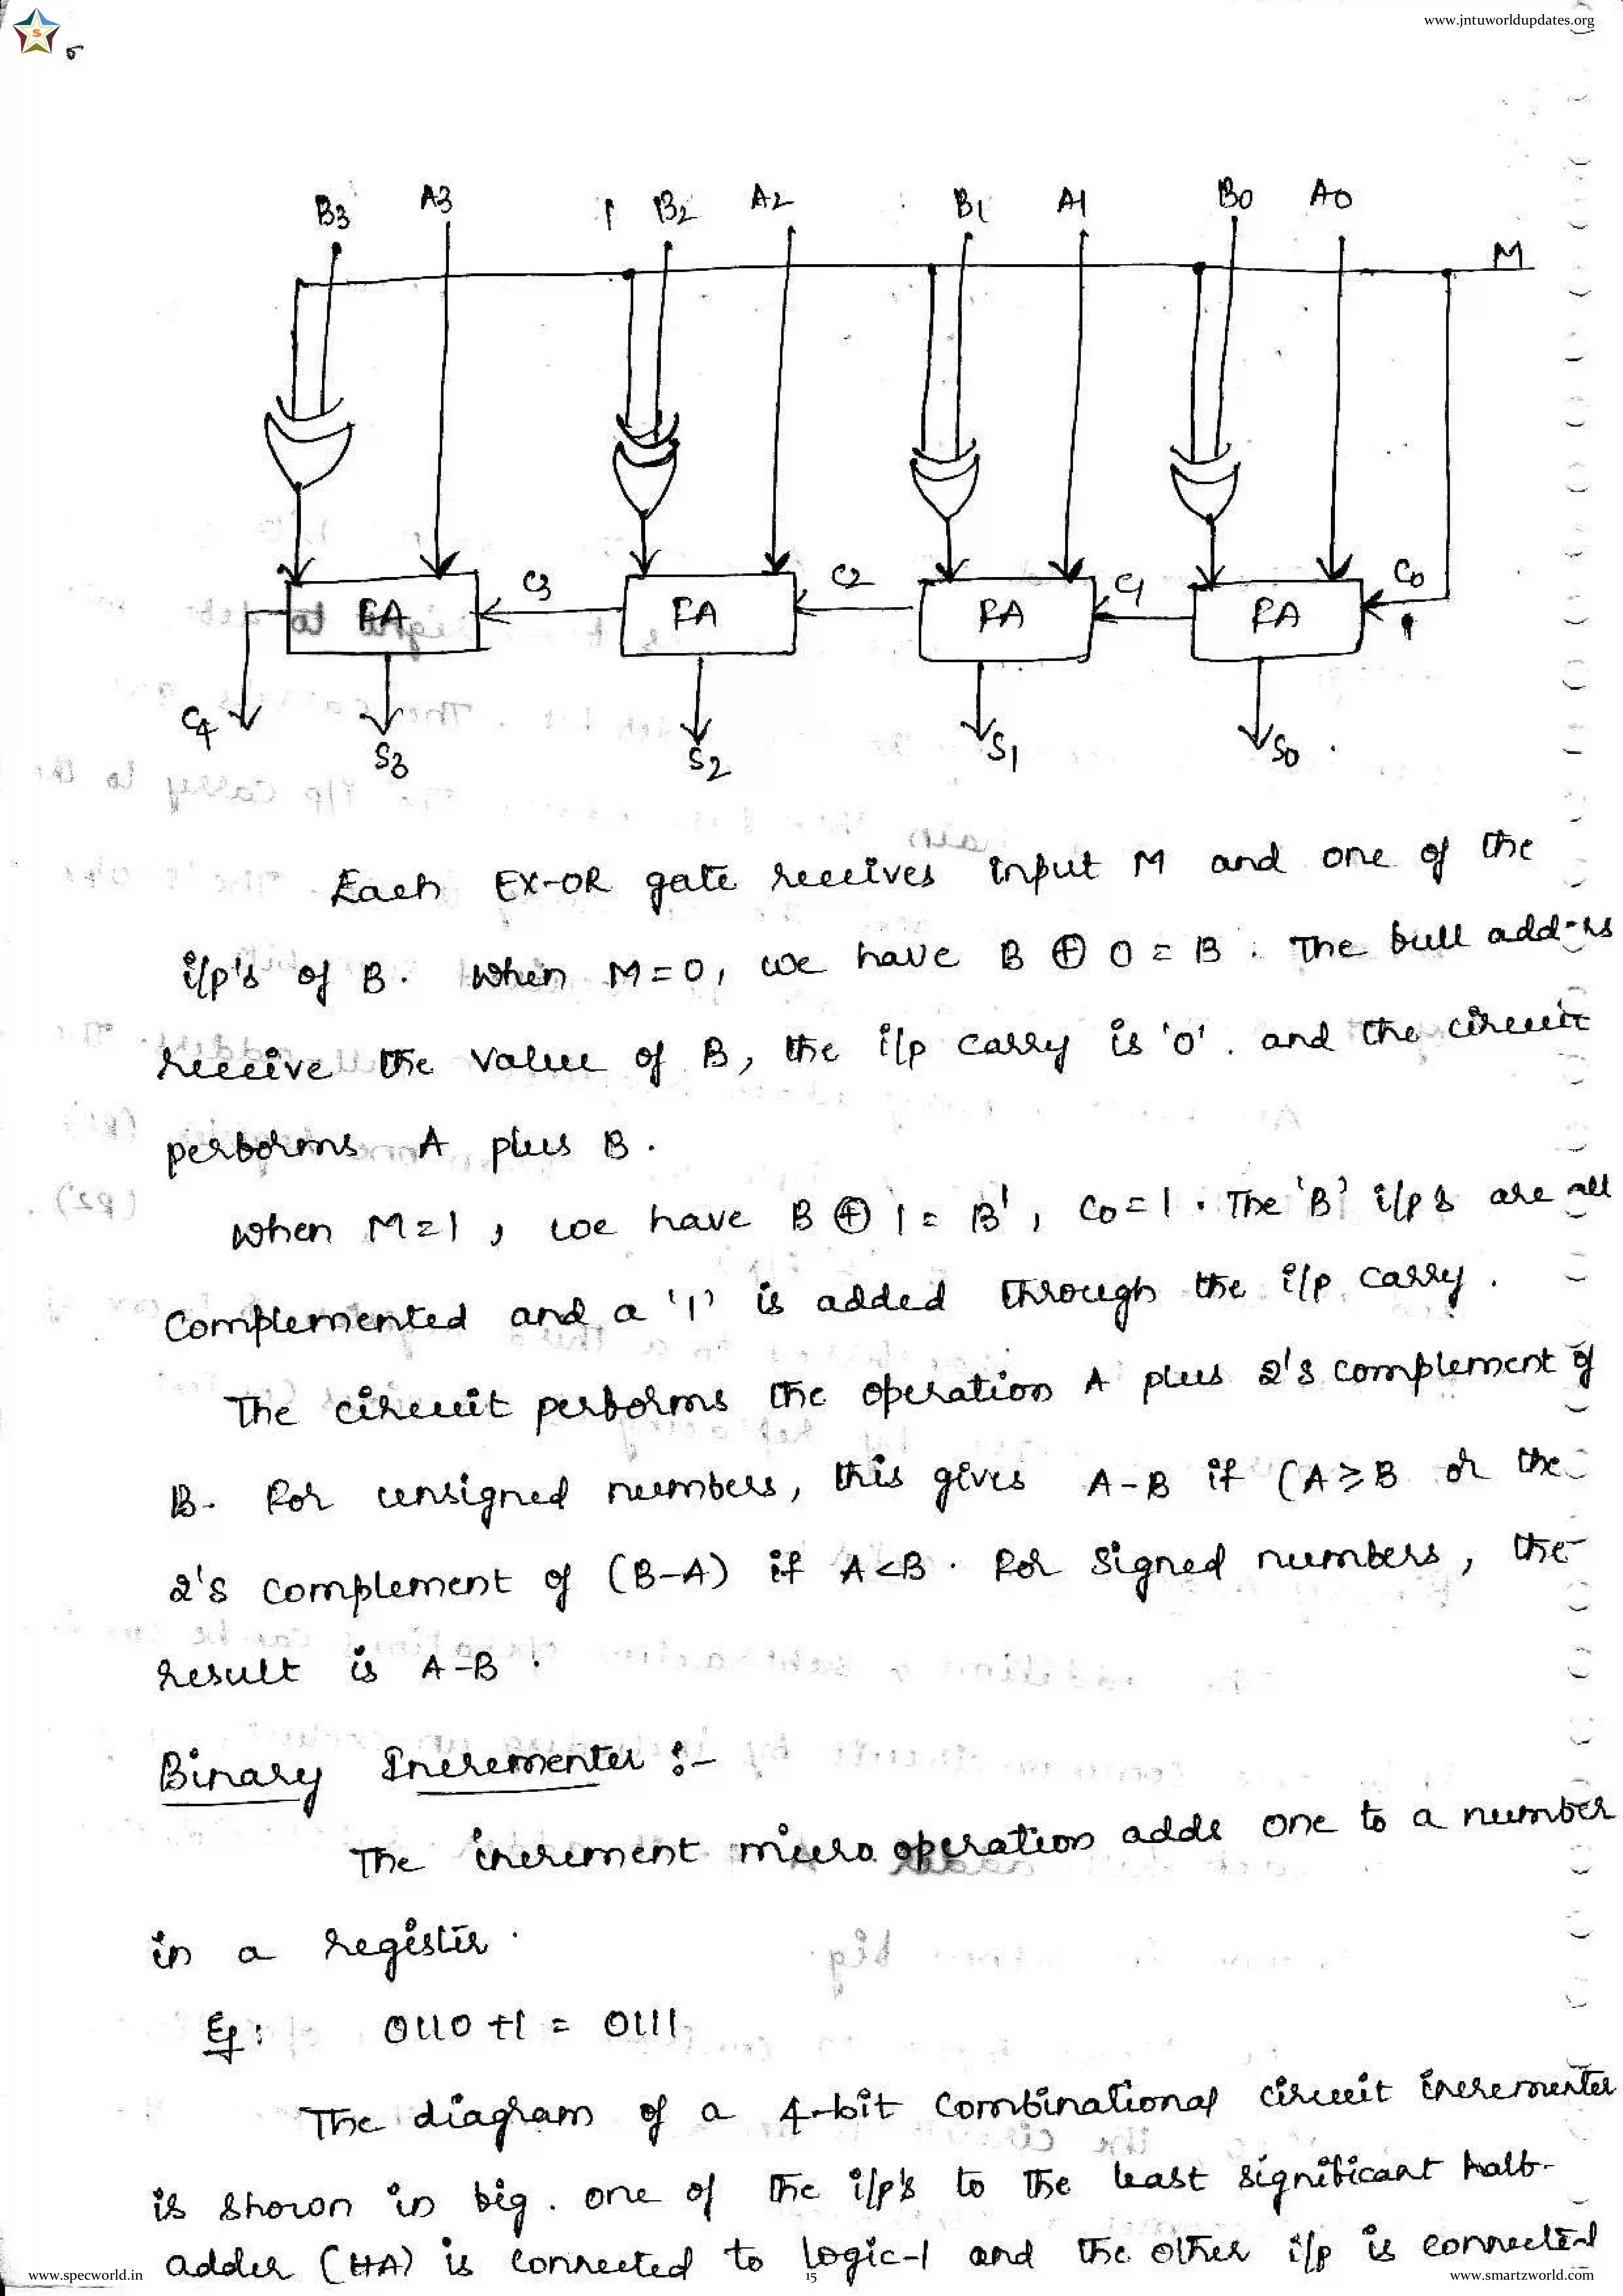 www.jntuworldupdates.org
S
B3 A3 B2 A2 B1 A1 B0 A0
M
C3 C2 C1 C0
FA FA FA FA
C4 S3 S2 S1 S0
Each EX-OR gate receives input M and one of the
i/p's of B. When M=0, we have B ⊕ 0 = B. The full adders
receive the value of B, the i/p carry is '0'. and the circuit
performs A plus B.
when M=1, we have B ⊕ 1 = B', C0=1. The 'B' i/p's are all
Complemented and a '1' is added through the i/p carry.
The circuit performs the operation A plus 2's complement of
B. For unsigned numbers, this gives A-B if (A≥B or the
2's complement of (B-A) if A<B. For signed numbers, the
result is A-B.
Binary Incrementer :-
The increment micro operation adds one to a number
in a register.
Eg: 0110 +1 = 0111
The diagram of a 4-bit Combinational circuit incrementer
is shown in fig. one of the i/p's to the least significant half-
adder (HA) is connected to logic-1 and the other i/p is connected
www.specworld.in 15 www.smartzworld.com